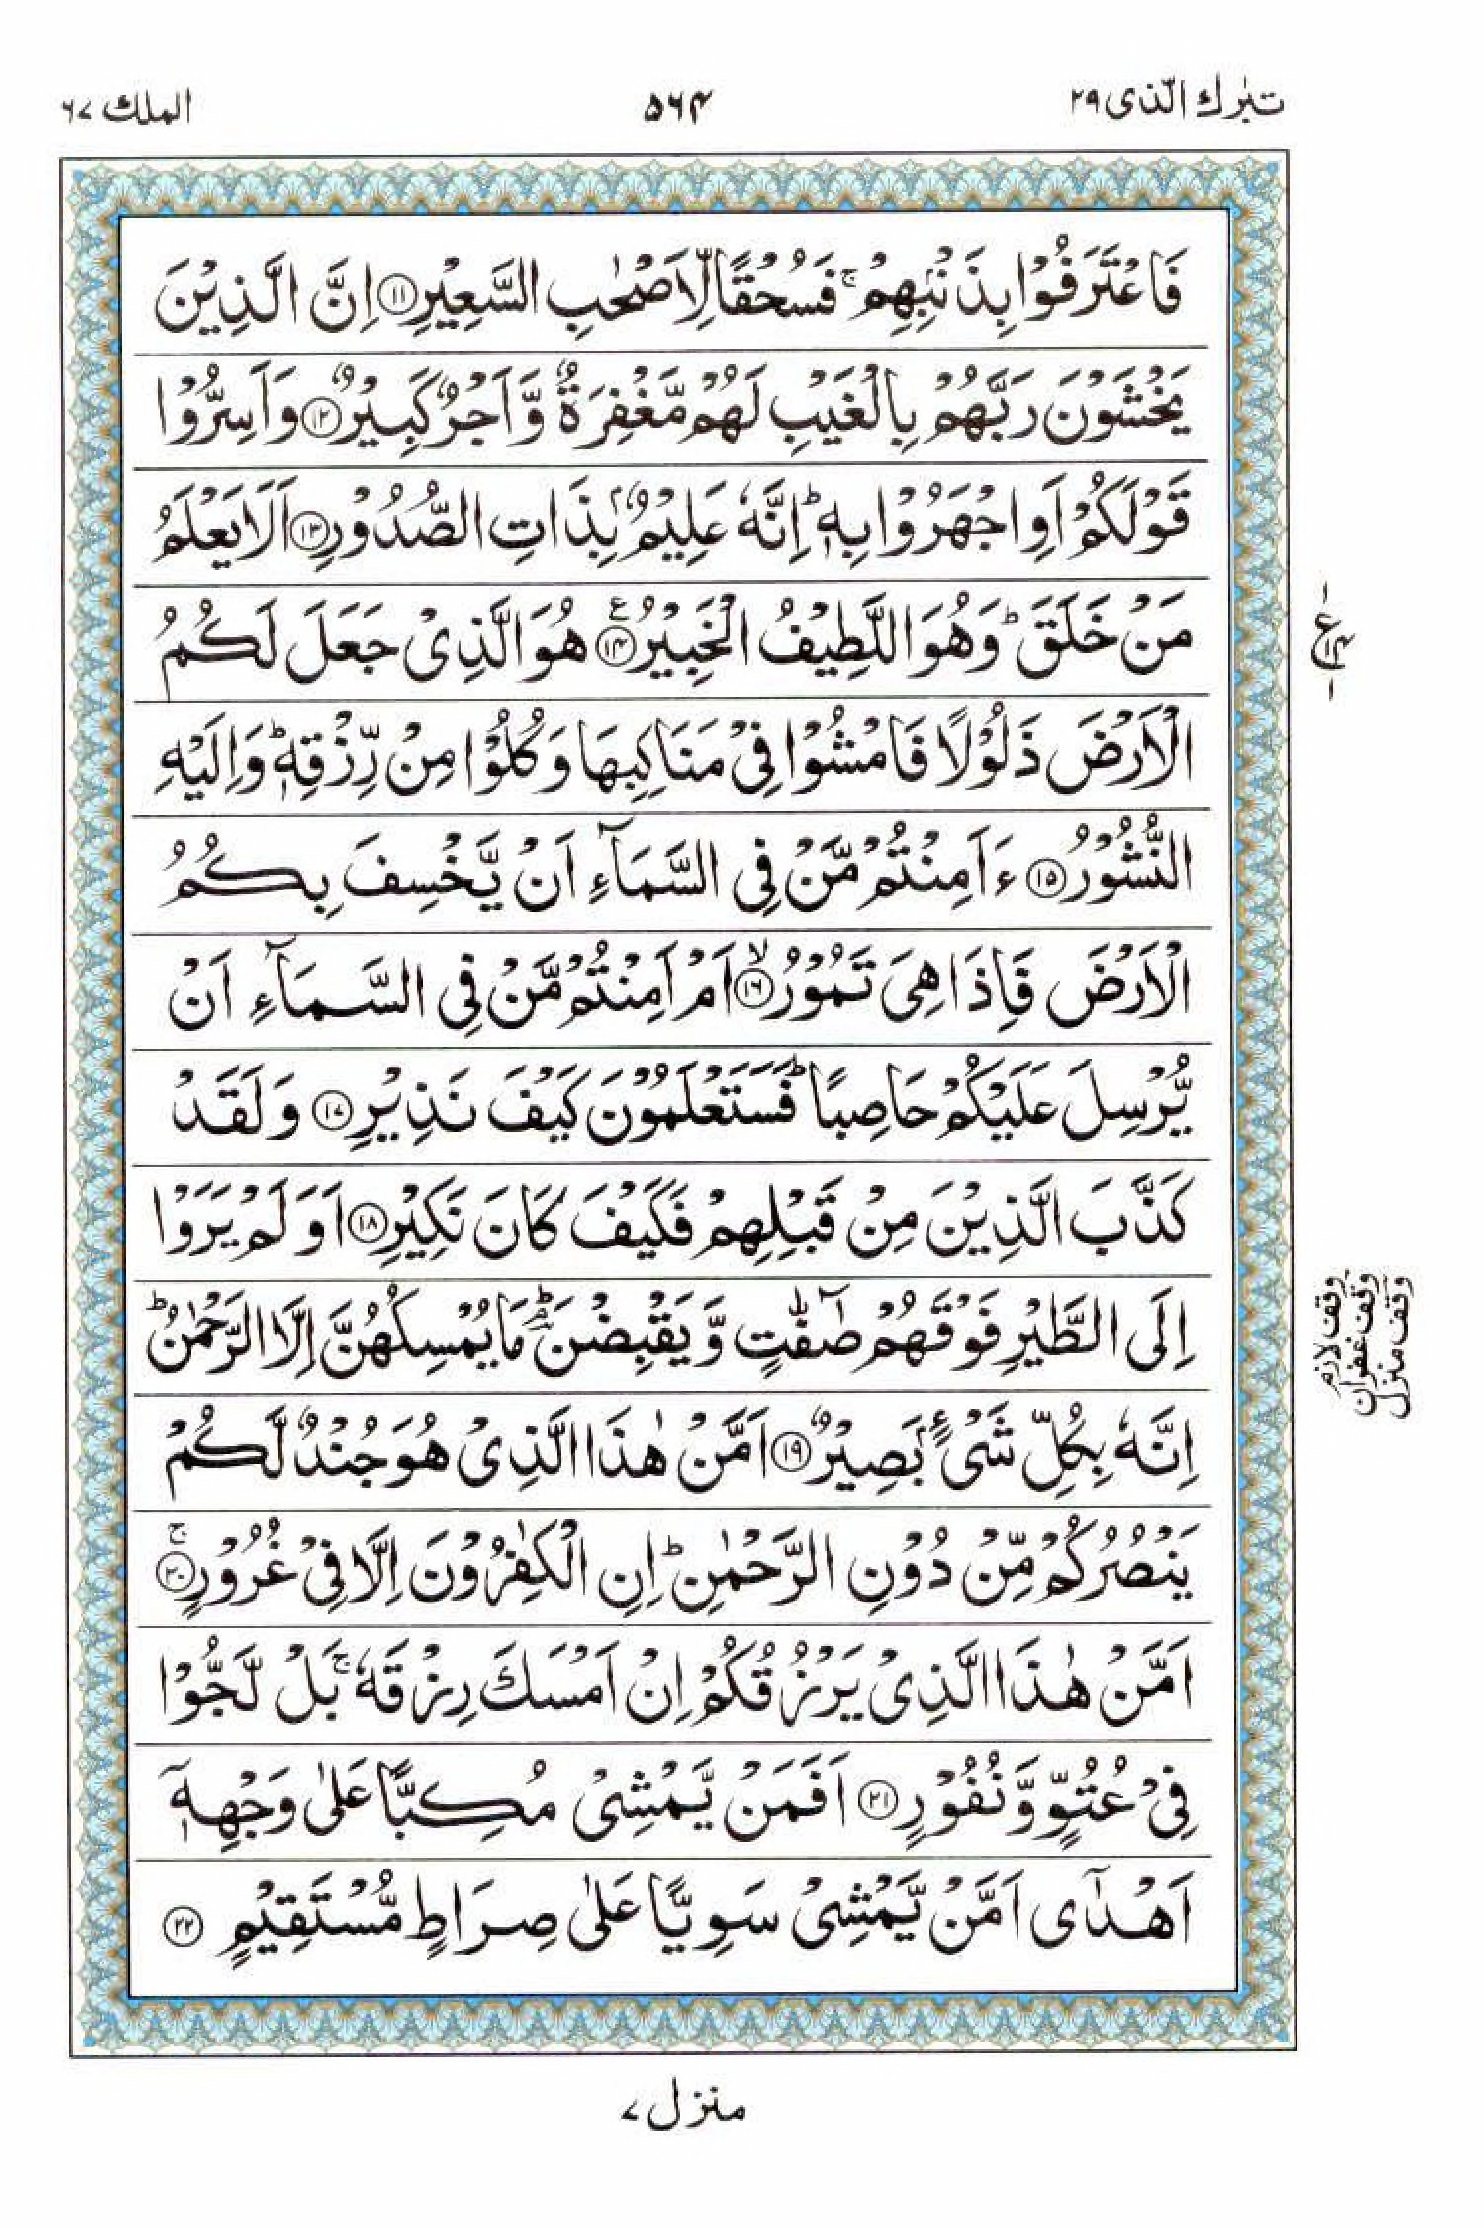 تبٰرك الّذی ٢٩
۵۶۴
الملك ٦٧
فَاعْتَرَفُوْا بِذَنْۢبِهِمْ ۚ فَسُحْقًا لِّاَصْحٰبِ السَّعِيْرِ ⑪ اِنَّ الَّذِيْنَ
يَخْشَوْنَ رَبَّهُمْ بِالْغَيْبِ لَهُمْ مَّغْفِرَةٌ وَّاَجْرٌ كَبِيْرٌ ⑫ وَاَسِرُّوْا
قَوْلَكُمْ اَوِ اجْهَرُوْا بِهٖ ؕ اِنَّهٗ عَلِيْمٌۢ بِذَاتِ الصُّدُوْرِ ⑬ اَلَا يَعْلَمُ
مَنْ خَلَقَ ؕ وَهُوَ اللَّطِيْفُ الْخَبِيْرُ ⑭ ع هُوَ الَّذِيْ جَعَلَ لَكُمُ
ع ١٤ ١
الْاَرْضَ ذَلُوْلًا فَامْشُوْا فِيْ مَنَاكِبِهَا وَكُلُوْا مِنْ رِّزْقِهٖ ؕ وَاِلَيْهِ
النُّشُوْرُ ⑮ ءَاَمِنْتُمْ مَّنْ فِي السَّمَآءِ اَنْ يَّخْسِفَ بِكُمُ
الْاَرْضَ فَاِذَا هِيَ تَمُوْرُ ⑯ ۙ اَمْ اَمِنْتُمْ مَّنْ فِي السَّمَآءِ اَنْ
يُّرْسِلَ عَلَيْكُمْ حَاصِبًا ؕ فَسَتَعْلَمُوْنَ كَيْفَ نَذِيْرِ ⑰ وَلَقَدْ
كَذَّبَ الَّذِيْنَ مِنْ قَبْلِهِمْ فَكَيْفَ كَانَ نَكِيْرِ ⑱ اَوَلَمْ يَرَوْا
اِلَى الطَّيْرِ فَوْقَهُمْ صٰٓفّٰتٍ وَّيَقْبِضْنَ ۘؕ مَا يُمْسِكُهُنَّ اِلَّا الرَّحْمٰنُ ؕ
وقف لازم
وقف غفران
وقف منزل
اِنَّهٗ بِكُلِّ شَيْءٍۢ بَصِيْرٌ ⑲ اَمَّنْ هٰذَا الَّذِيْ هُوَ جُنْدٌ لَّكُمْ
يَنْصُرُكُمْ مِّنْ دُوْنِ الرَّحْمٰنِ ؕ اِنِ الْكٰفِرُوْنَ اِلَّا فِيْ غُرُوْرٍ ⑳ ۚ
اَمَّنْ هٰذَا الَّذِيْ يَرْزُقُكُمْ اِنْ اَمْسَكَ رِزْقَهٗ ۚ بَلْ لَّجُّوْا
فِيْ عُتُوٍّ وَّنُفُوْرٍ ㉑ اَفَمَنْ يَّمْشِيْ مُكِبًّا عَلٰى وَجْهِهٖٓ
اَهْدٰٓى اَمَّنْ يَّمْشِيْ سَوِيًّا عَلٰى صِرَاطٍ مُّسْتَقِيْمٍ ㉒
منزل ٧